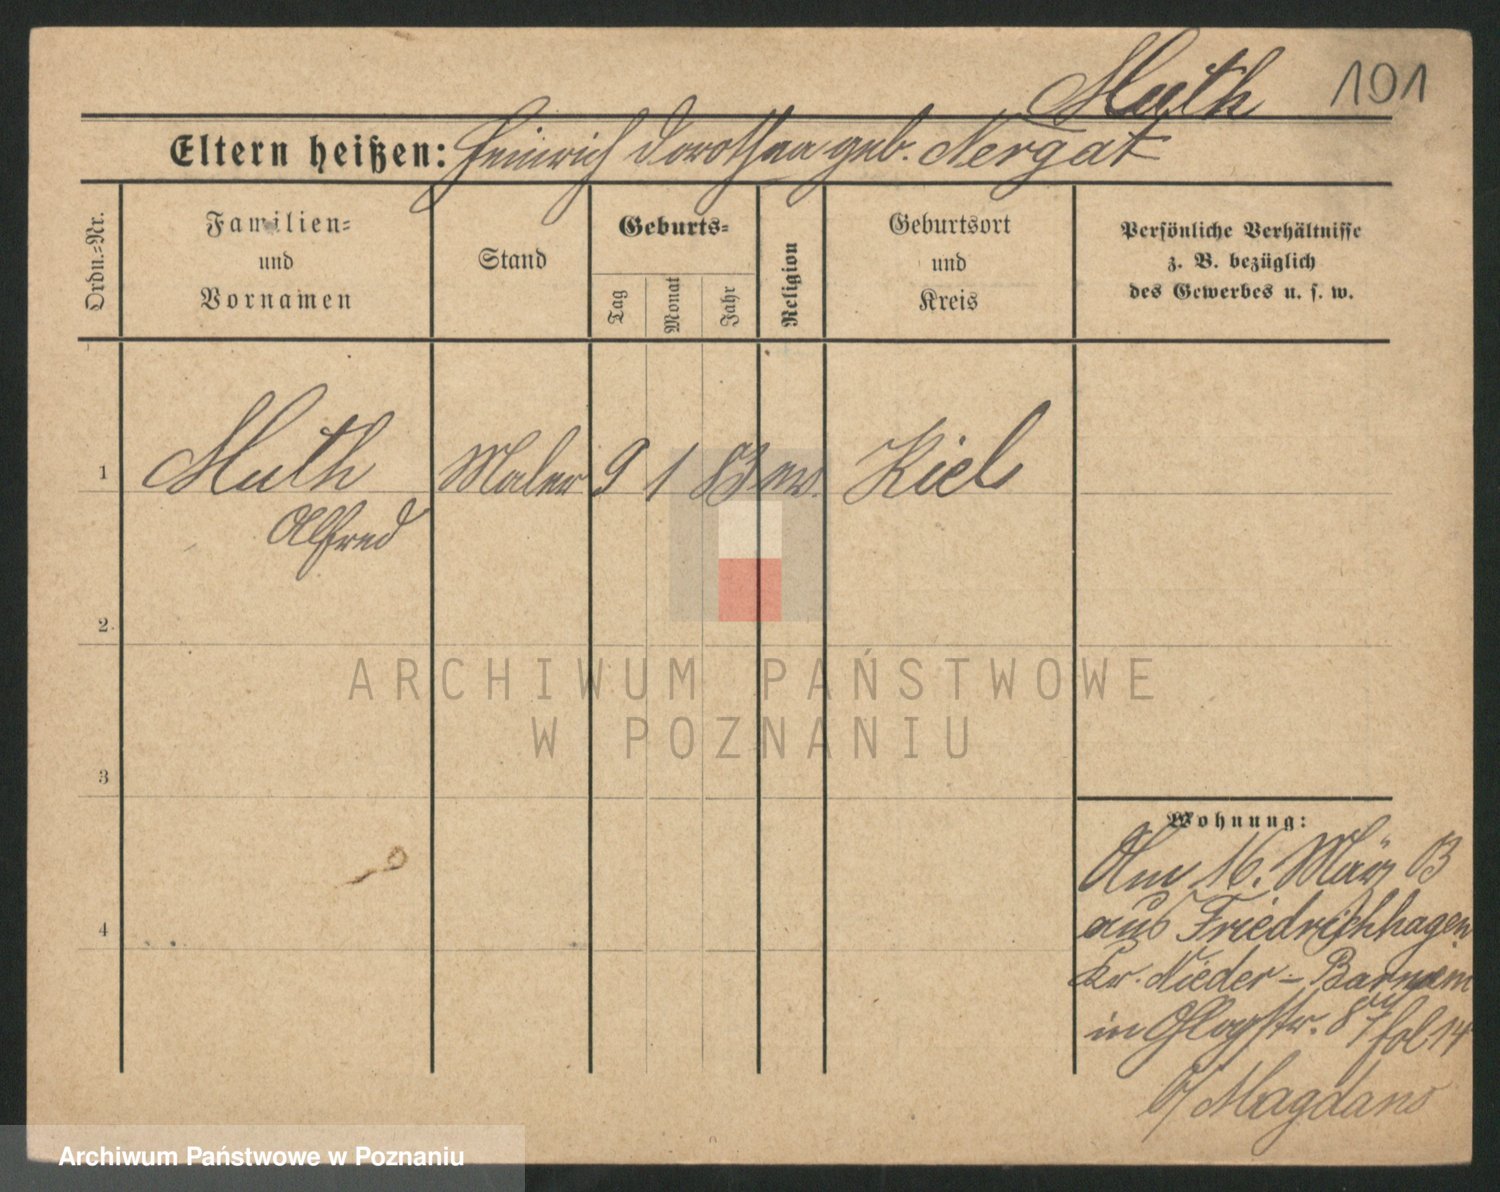 Muth 101
Eltern heißen: Heinrich Dorothea geb. Nergat
Ordn.-Nr.
Familien-
und
Vornamen
Stand
Geburts-
Tag
Monat
Jahr
Religion
Geburtsort
und
Kreis
Persönliche Verhältnisse
z. B. bezüglich
des Gewerbes u. s. w.
1 Muth Maler 9 1 83 ev. Kiel
Alfred
2
3
4
Wohnung:
Am 16. März 03
aus Friedrichhagen
Kr. Nieder-Barnim
in Glogstr. fol 14
b/ Magdans
ARCHIWUM PAŃSTWOWE
W POZNANIU
Archiwum Państwowe w Poznaniu